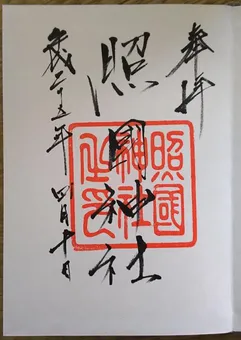 奉拝
照国神社
平成二十五年四月十日
照國神社之印